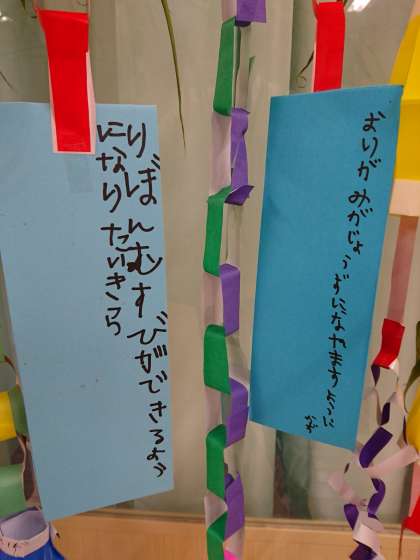 りぼんむすびができるよう
になりたい きら
おりがみがじょうずになやますように